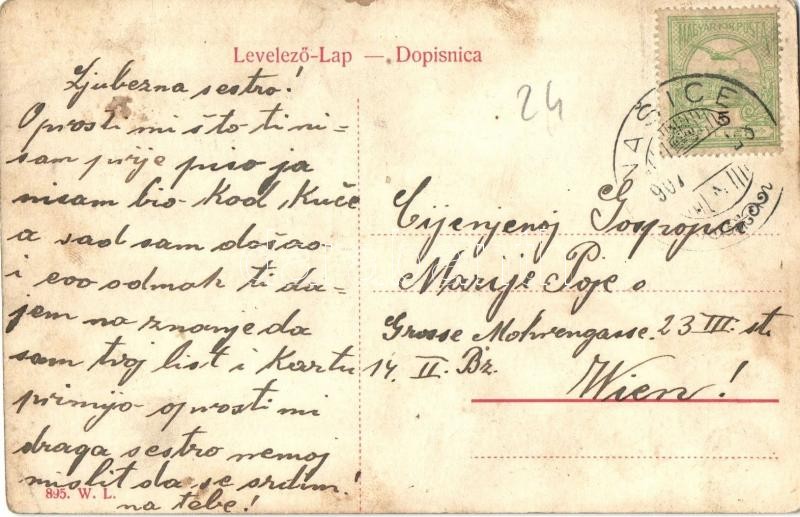 Levelező-Lap — Dopisnica
24
MAGYAR KIR. POSTA
NAŠICE
907
Ljubezna sestro!
Oprosti mi što ti ni-
sam prije piso ja
nisam bio kod Kuče
a sad sam došao
i evo odmak ti da-
jem na znanje da
sam tvoj list i Kartu
primijo oprosti mi
draga sestro nemoj
mislit da se srdim!
na tebe!
Cijenjenoj Gospojici
Marije Poje
Grosse Mohrengasse 23 III. st.
14 II. Bz.
Wien!
895. W. L.